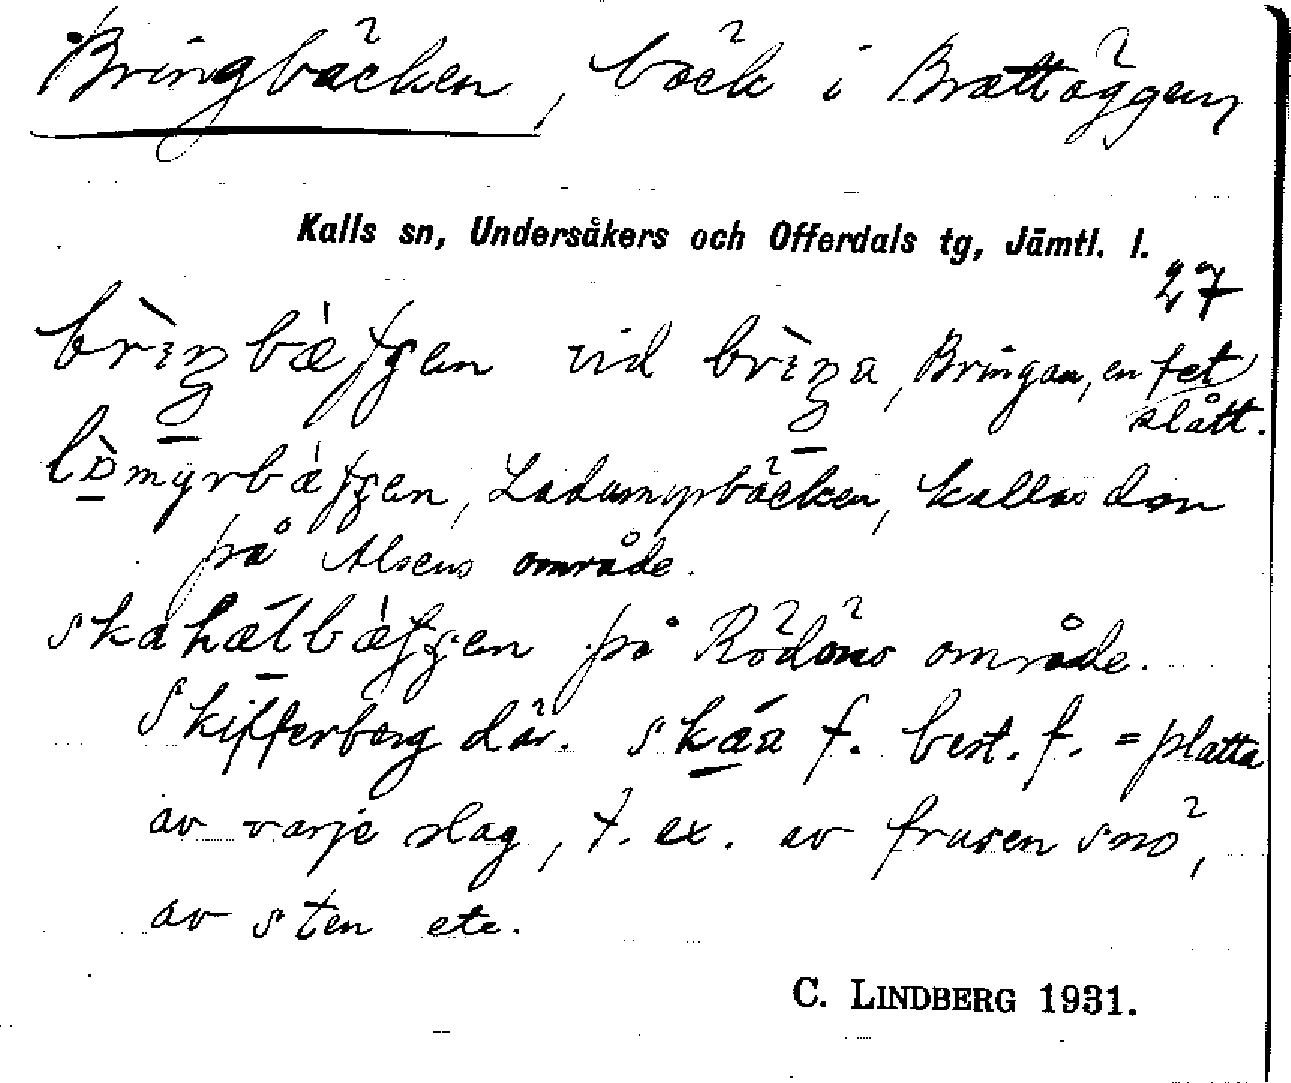 Bringbäcken, bäck i Brattäggen,
Kalls sn, Undersåkers och Offerdals tg, Jämtl. l.
27
vid Bringan, en fet
slått.
Ladumyrbäcken, kallas den
på Alsens område.
på Rödöns område.
Skifferberg där. f. best. f. = platta
av varje slag, t. ex. av frusen snö,
av sten etc.
C. LINDBERG 1931.